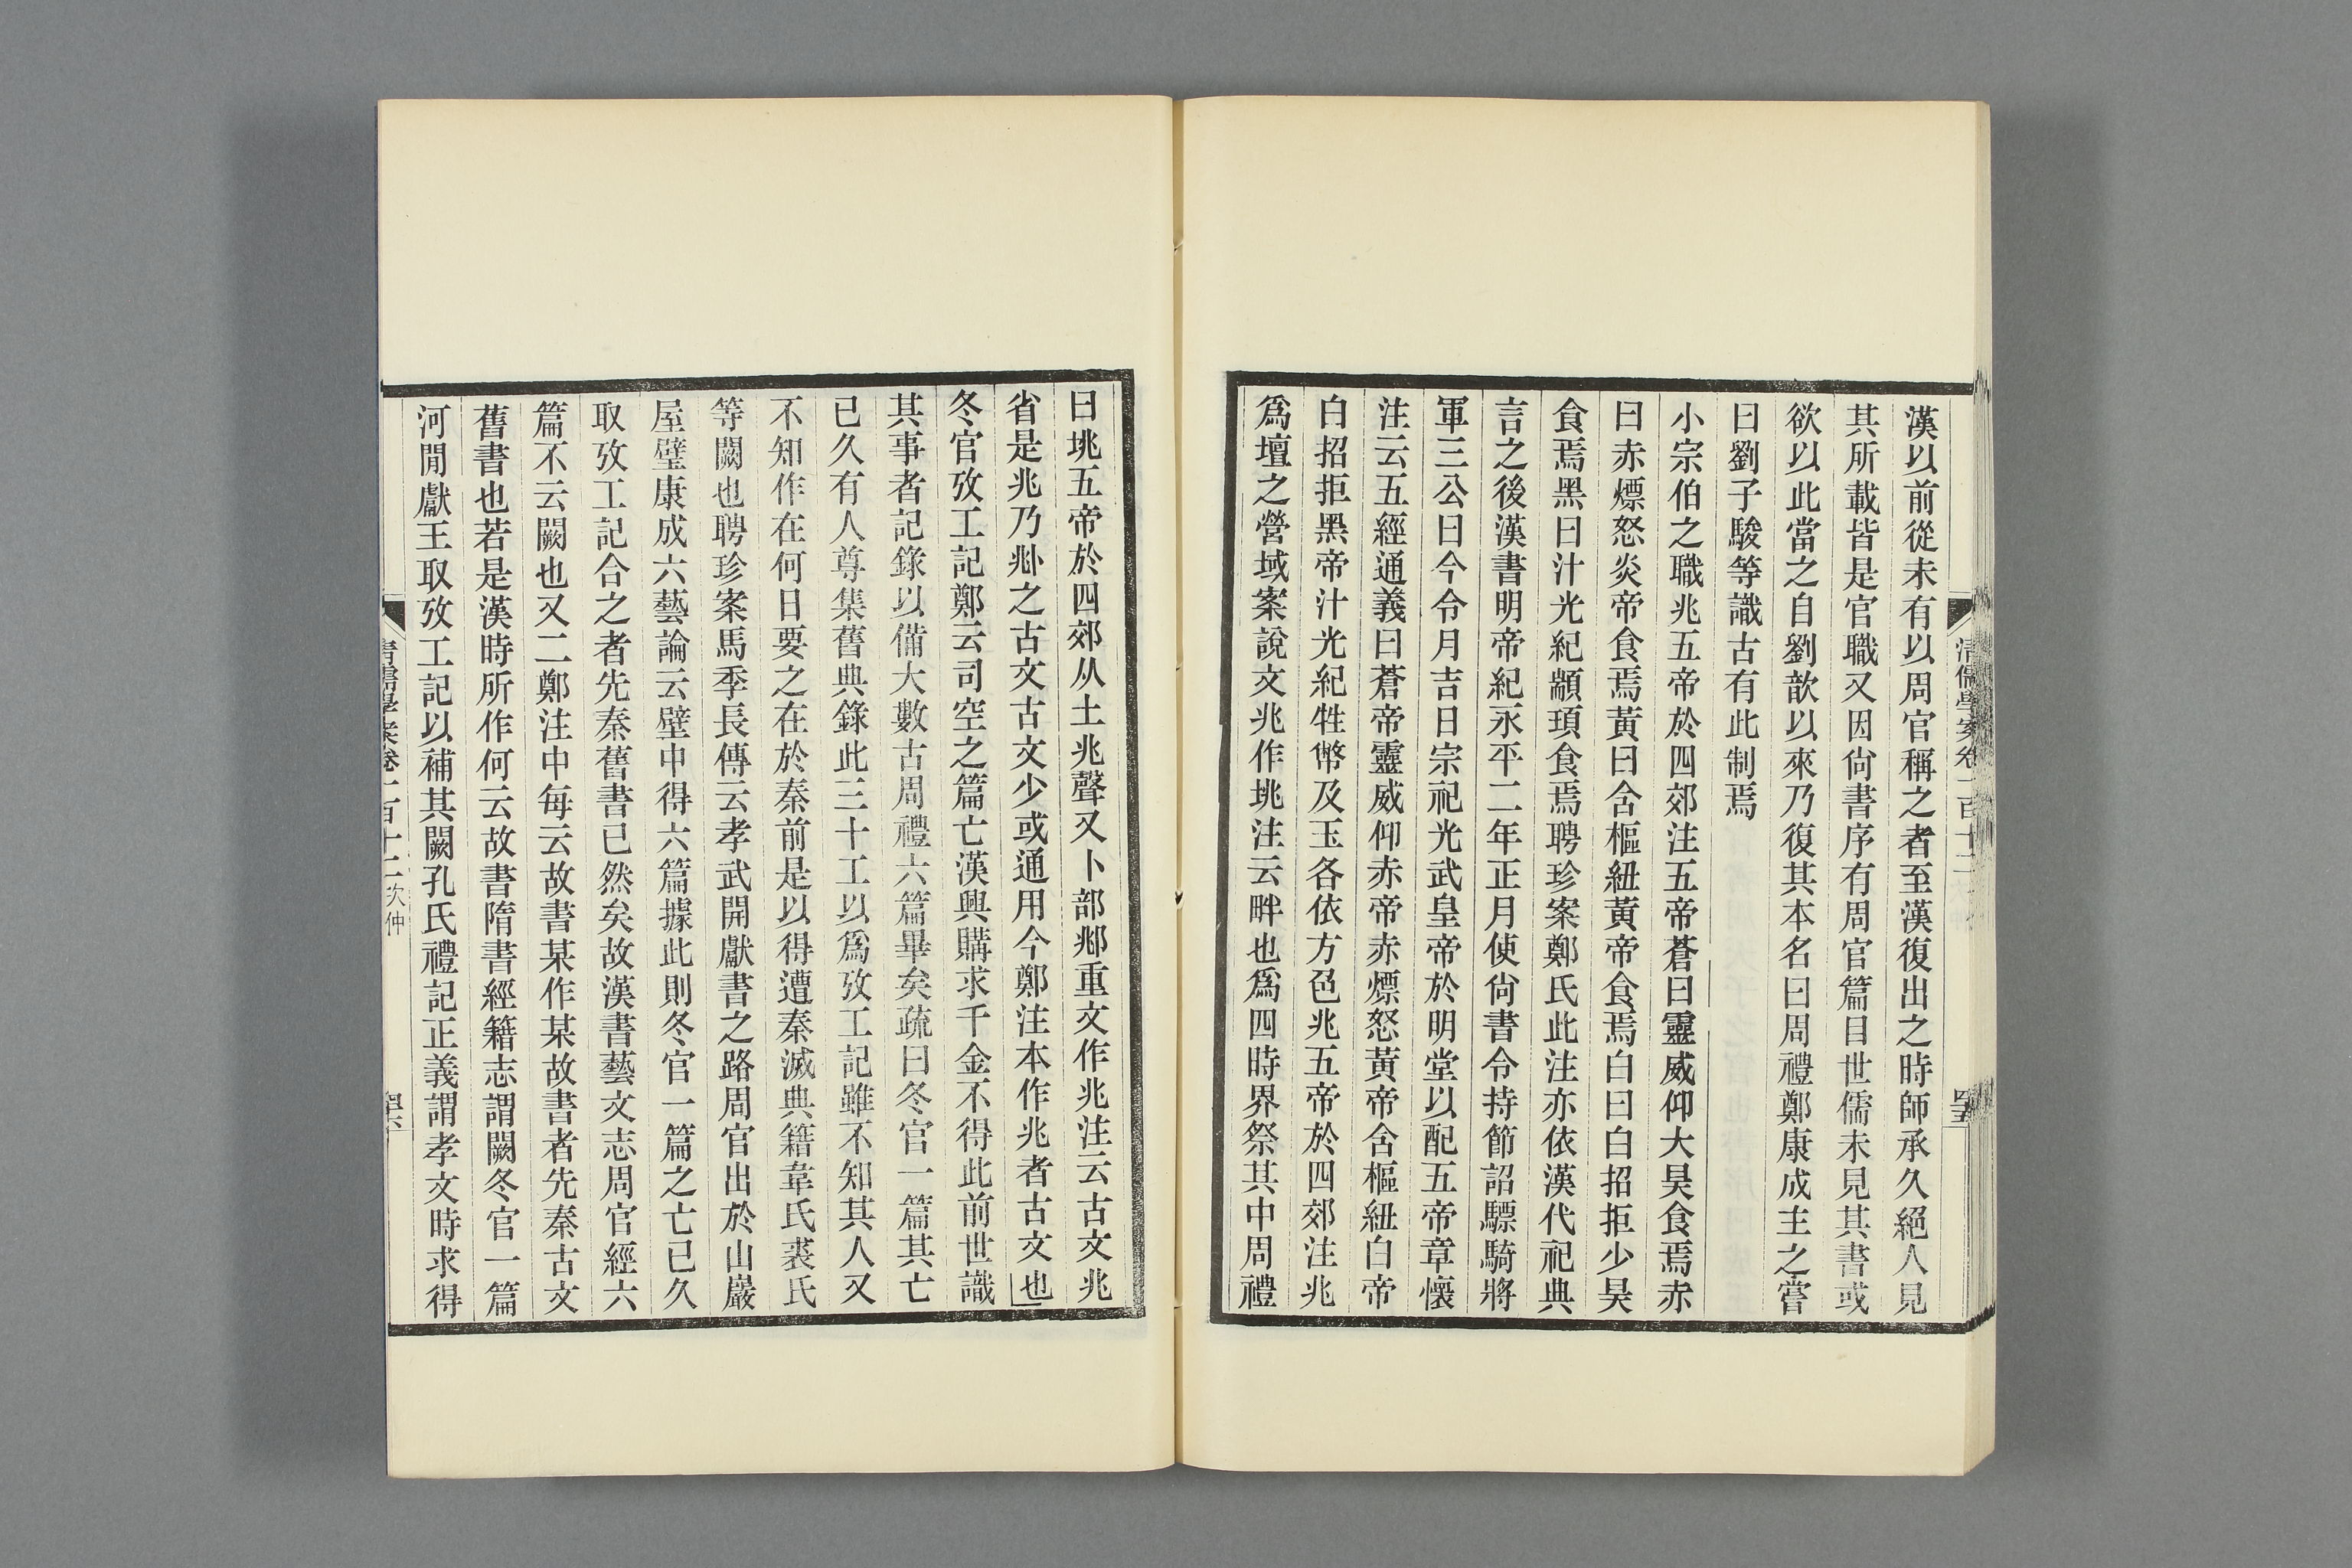 漢以前從未有以周官稱之者至漢復出之時師承久絕人見
其所載皆是官職又因尙書序有周官篇目世儒未見其書或
欲以此當之自劉歆以來乃復其本名曰周禮鄭康成主之嘗
曰劉子駿等識古有此制焉
小宗伯之職兆五帝於四郊注五帝蒼曰靈威仰大昊食焉赤
曰赤熛怒炎帝食焉黃曰含樞紐黃帝食焉白曰白招拒少昊
食焉黑曰汁光紀顓頊食焉聘珍案鄭氏此注亦依漢代祀典
言之後漢書明帝紀永平二年正月使尙書令持節詔驃騎將
軍三公曰今令月吉日宗祀光武皇帝於明堂以配五帝章懷
注云五經通義曰蒼帝靈威仰赤帝赤熛怒黃帝含樞紐白帝
白招拒黑帝汁光紀牲幣及玉各依方色兆五帝於四郊注兆
爲壇之營域案說文兆作垗注云畔也爲四時界祭其中周禮
清儒學案卷一百十二
四十五
曰垗五帝於四郊从土兆聲又卜部𠧞重文作兆注云古文兆
省是兆乃𠧞之古文古文少或通用今鄭注本作兆者古文也
冬官攷工記鄭云司空之篇亡漢興購求千金不得此前世識
其事者記錄以備大數古周禮六篇畢矣疏曰冬官一篇其亡
已久有人尊集舊典錄此三十工以爲攷工記雖不知其人又
不知作在何日要之在於秦前是以得遭秦滅典籍韋氏裘氏
等闕也聘珍案馬季長傳云孝武開獻書之路周官出於山巖
屋壁康成六藝論云壁中得六篇據此則冬官一篇之亡已久
取攷工記合之者先秦舊書已然矣故漢書藝文志周官經六
篇不云闕也又二鄭注中每云故書某作某故書者先秦古文
舊書也若是漢時所作何云故書隋書經籍志謂闕冬官一篇
河閒獻王取攷工記以補其闕孔氏禮記正義謂孝文時求得
清儒學案卷一百十二 次仲
四十六